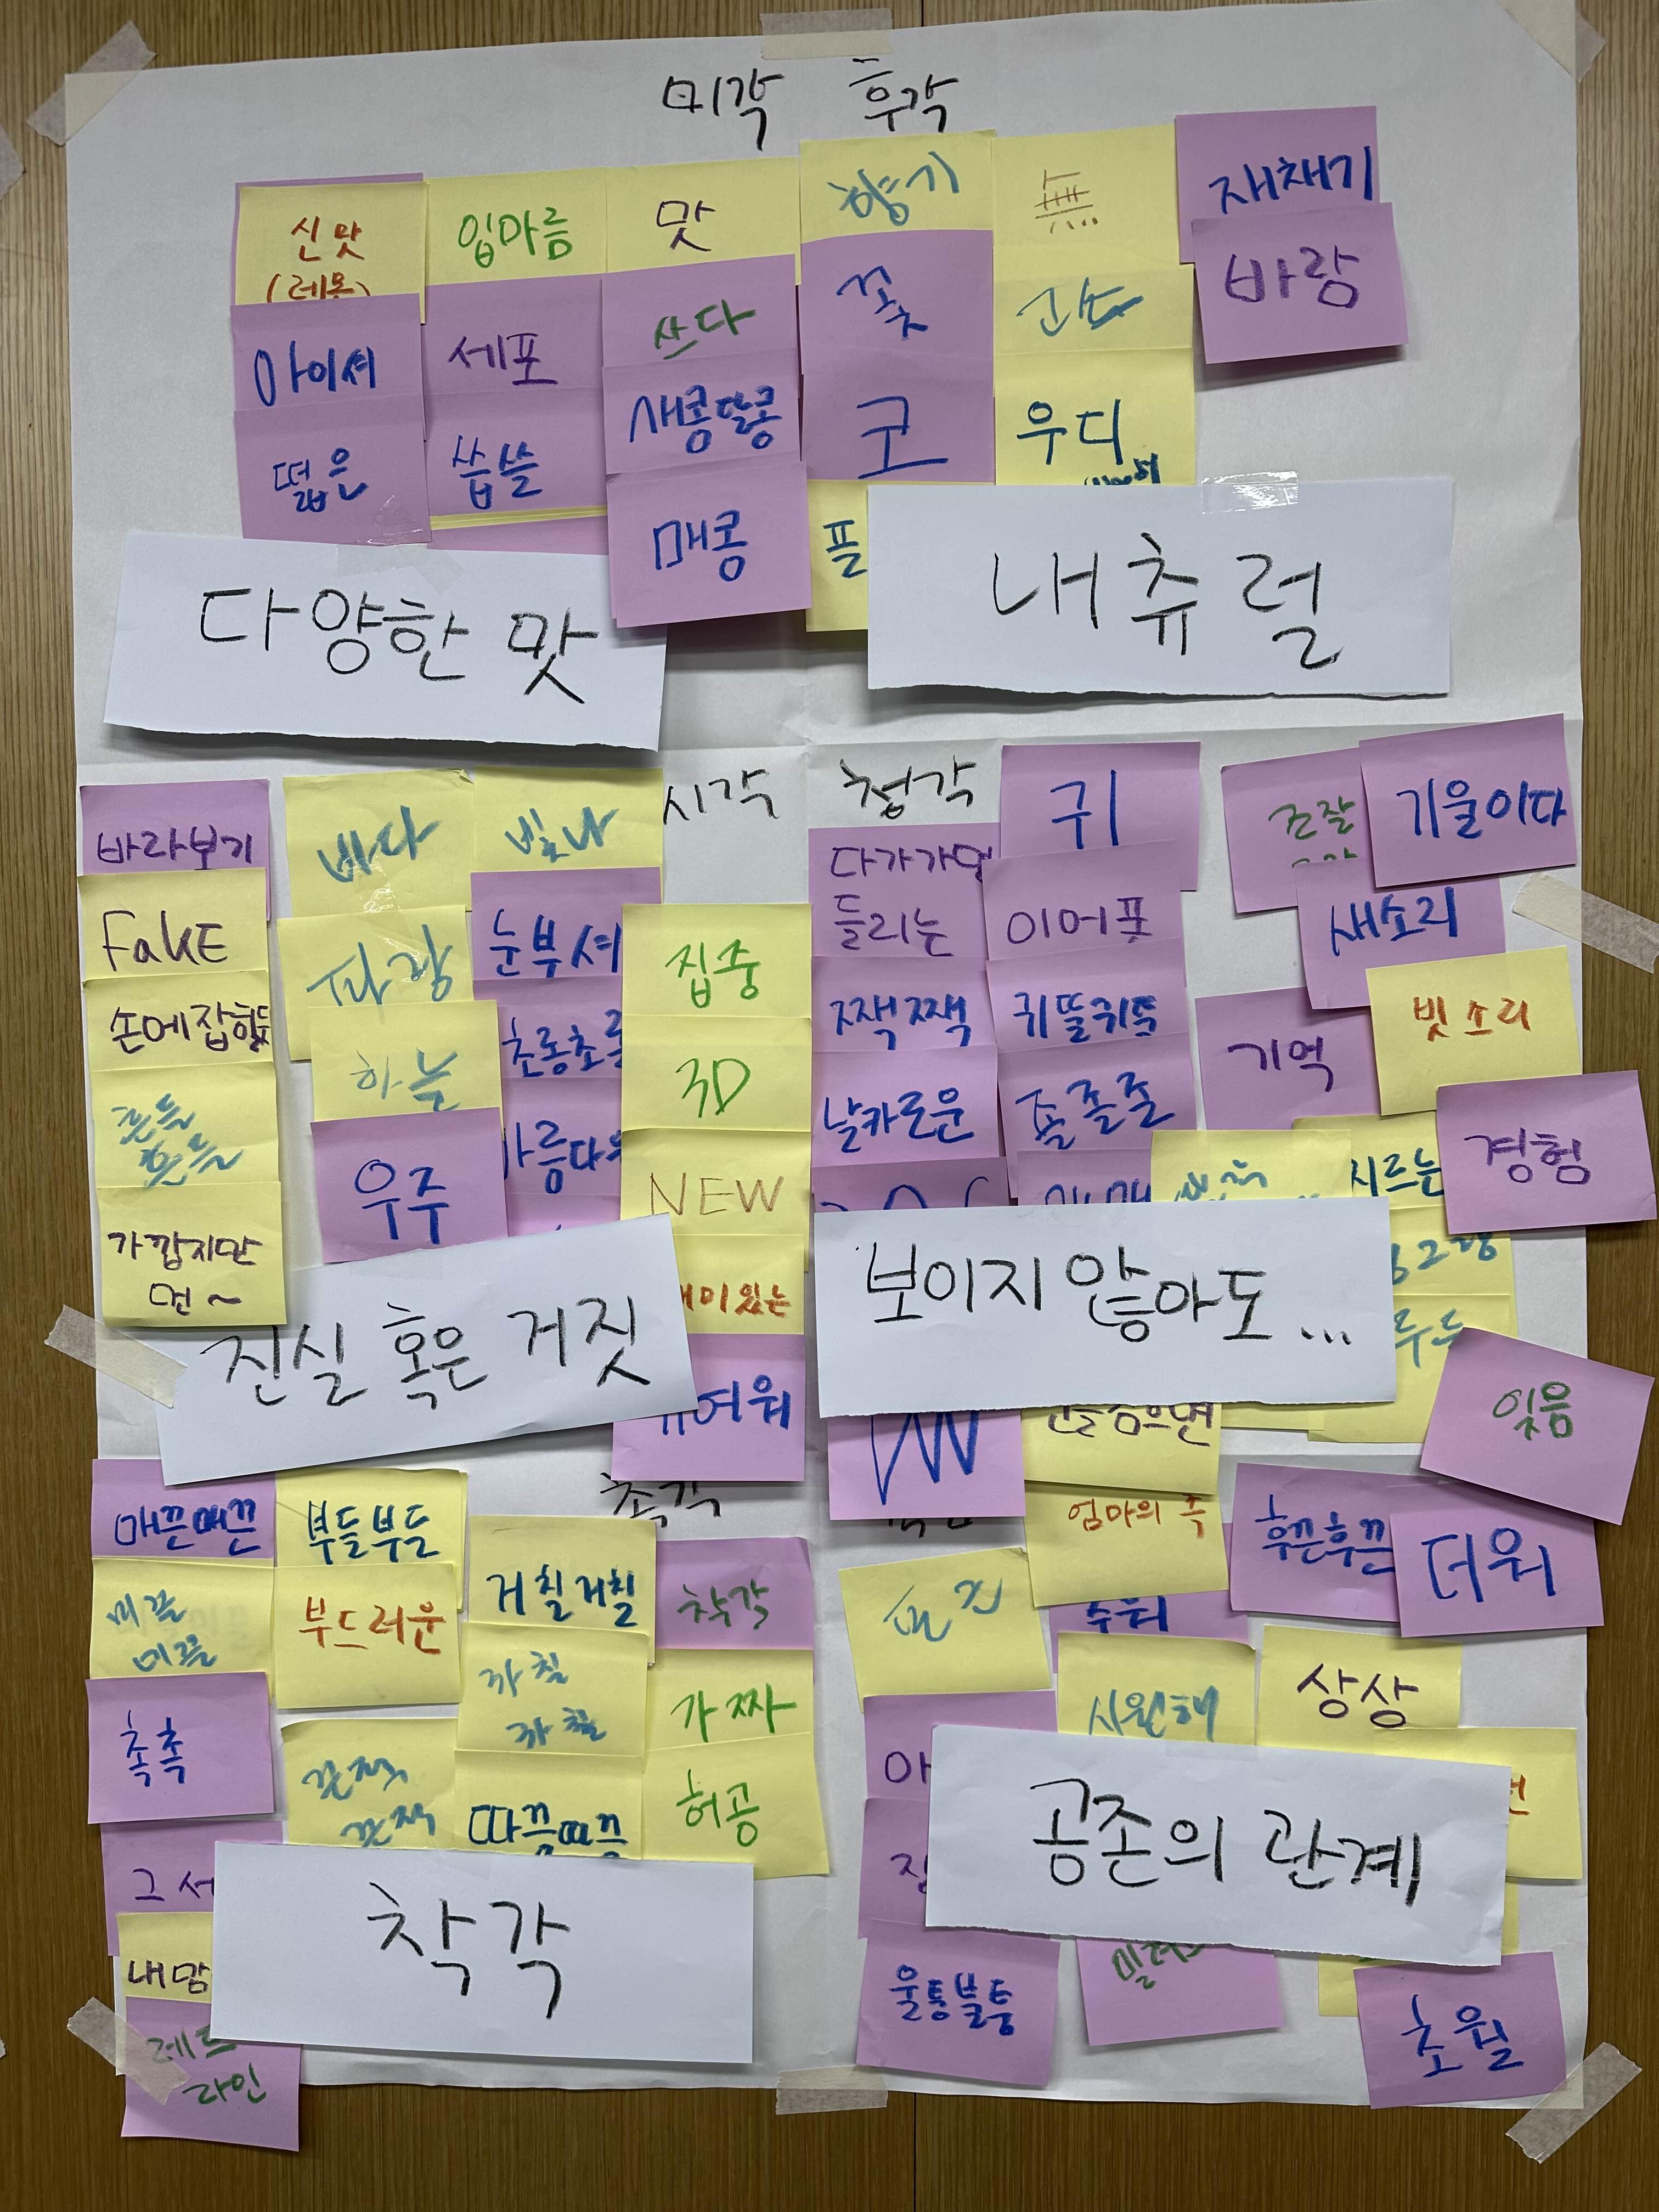 미각 후각
신맛
(레몬)
아이셔
떫은
입마름
세포
씁쓸
맛
쓰다
새콩달콩
매콩
향기
꽃
코
플
無
우디
재채기
바람
다양한 맛
내츄럴
시각
바라보기
FakE
손에잡힐듯
흔들
흔들
가깝지만
먼~
바다
파랑
하늘
우주
빛나
눈부셔
초롱초롱
집중
3D
NEW
진실 혹은 거짓
청각
다가가면
들리는
짹짹
날카로운
귀
이어폰
귀뚤귀뚤
졸졸졸
기울이다
새소리
빗소리
기억
경험
보이지 않아도...
잊음
촉각
매끈매끈
미끌
미끌
촉촉
내맘
레드
라인
부들부들
부드러운
끈적
끈적
거칠거칠
까칠
까칠
따끔따끔
착각
가짜
허공
착각
엄마의
추워
시원해
후끈후끈
더워
상상
공존의 관계
울퉁불퉁
초월